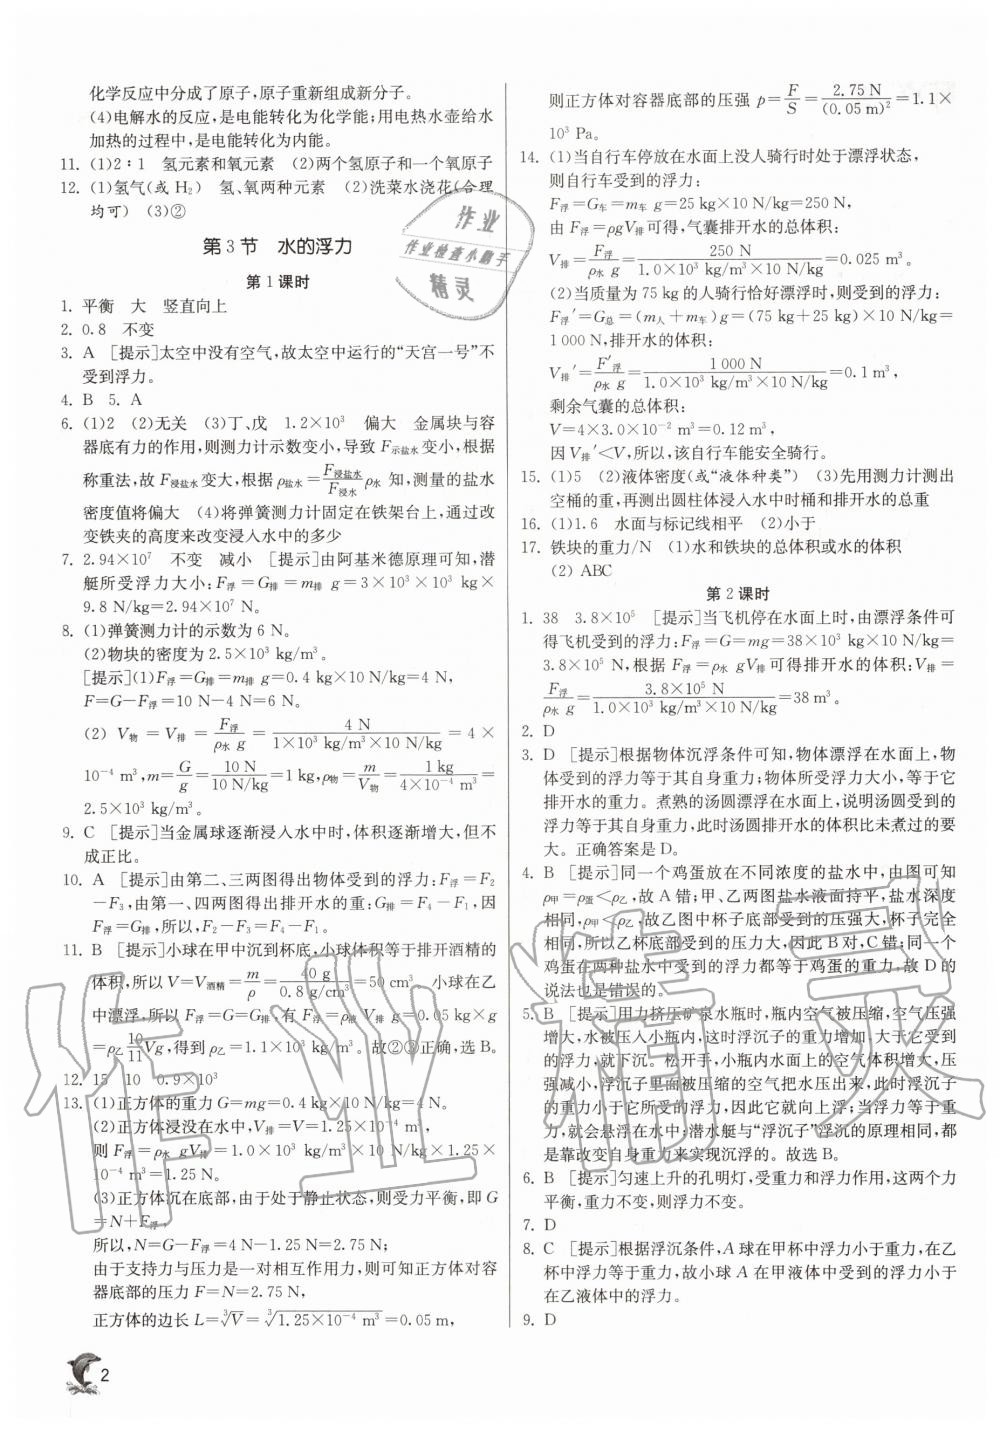 化学反应中分成了原子,原子重新组成新分子。
(4)电解水的反应,是电能转化为化学能;用电热水壶给水
加热的过程中,是电能转化为内能。
11. (1)2∶1 氢元素和氧元素 (2)两个氢原子和一个氧原子
12. (1)氢气(或 H₂) 氢、氧两种元素 (2)洗菜水浇花(合理
均可) (3)②
第 3 节 水的浮力
第 1 课时
1. 平衡 大 竖直向上
2. 0.8 不变
3. A [提示]太空中没有空气,故太空中运行的“天宫一号”不
受到浮力。
4. B 5. A
6. (1)2 (2)无关 (3)丁、戊 1.2×10³ 偏大 金属块与容
器底有力的作用,则测力计示数变小,导致 F示盐水变小,根据
称重法,故 F浸盐水变大,根据 ρ盐水=F浸盐水/F浸水 ρ水 知,测量的盐水
密度值将偏大 (4)将弹簧测力计固定在铁架台上,通过改
变铁夹的高度来改变浸入水中的多少
7. 2.94×10⁷ 不变 减小 [提示]由阿基米德原理可知,潜
艇所受浮力大小:F浮=G排=m排 g=3×10³×10³ kg×
9.8 N/kg=2.94×10⁷ N。
8. (1)弹簧测力计的示数为 6 N。
(2)物块的密度为 2.5×10³ kg/m³。
[提示](1)F浮=G排=m排 g=0.4 kg×10 N/kg=4 N,
F=G-F浮=10 N-4 N=6 N。
(2) V物=V排=F浮/ρ水 g=4 N/1×10³ kg/m³×10 N/kg=4×
10⁻⁴ m³,m=G/g=10 N/10 N/kg=1 kg,ρ物=m/V物=1 kg/4×10⁻⁴ m³=
2.5×10³ kg/m³。
9. C [提示]当金属球逐渐浸入水中时,体积逐渐增大,但不
成正比。
10. A [提示]由第二、三两图得出物体受到的浮力:F浮=F₂
-F₃,由第一、四两图得出排开水的重:G排=F₄-F₁,因
F浮=G排,所以,F₂-F₃=F₄-F₁。
11. B [提示]小球在甲中沉到杯底,小球体积等于排开酒精的
体积,所以 V=V酒精=m/ρ=40 g/0.8 g/cm³=50 cm³。小球在乙
中漂浮,所以 F浮=G=G排,有 F浮=ρ液 V排 g=0.05 kg×g
=ρ乙 10/11 Vg,得到 ρ乙=1.1×10³ kg/m³。故②③正确,选 B。
12. 15 10 0.9×10³
13. (1)正方体的重力 G=mg=0.4 kg×10 N/kg=4 N。
(2)正方体浸没在水中,V排=V=1.25×10⁻⁴ m³,
则 F浮=ρ水 gV排=1.0×10³ kg/m³×10 N/kg×1.25×
10⁻⁴ m³=1.25 N。
(3)正方体沉在底部,由于处于静止状态,则受力平衡,即 G
=N+F浮,
所以,N=G-F浮=4 N-1.25 N=2.75 N;
由于支持力与压力是一对相互作用力,则可知正方体对容
器底部的压力 F=N=2.75 N,
正方体的边长 L=∛V=∛1.25×10⁻⁴ m³=0.05 m,
2
则正方体对容器底部的压强 p=F/S=2.75 N/(0.05 m)²=1.1×
10³ Pa。
14. (1)当自行车停放在水面上没人骑行时处于漂浮状态,
则自行车受到的浮力:
F浮=G车=m车 g=25 kg×10 N/kg=250 N,
由 F浮=ρgV排可得,气囊排开水的总体积:
V排=F浮/ρ水 g=250 N/1.0×10³ kg/m³×10 N/kg=0.025 m³。
(2)当质量为 75 kg的人骑行恰好漂浮时,则受到的浮力:
F浮′=G总=(m人+m车)g=(75 kg+25 kg)×10 N/kg=
1 000 N,排开水的体积:
V排′=F′浮/ρ水 g=1 000 N/1.0×10³ kg/m³×10 N/kg=0.1 m³,
剩余气囊的总体积:
V=4×3.0×10⁻² m³=0.12 m³,
因 V排′<V,所以,该自行车能安全骑行。
15. (1)5 (2)液体密度(或“液体种类”) (3)先用测力计测出
空桶的重,再测出圆柱体浸入水中时桶和排开水的总重
16. (1)1.6 水面与标记线相平 (2)小于
17. 铁块的重力/N (1)水和铁块的总体积或水的体积
(2) ABC
第 2 课时
1. 38 3.8×10⁵ [提示]当飞机停在水面上时,由漂浮条件可
得飞机受到的浮力:F浮=G=mg=38×10³ kg×10 N/kg=
3.8×10⁵ N,根据 F浮=ρ水 gV排可得排开水的体积:V排=
F浮/ρ水 g=3.8×10⁵ N/1.0×10³ kg/m³×10 N/kg=38 m³。
2. D
3. D [提示]根据物体沉浮条件可知,物体漂浮在水面上,物
体受到的浮力等于其自身重力;物体所受浮力大小,等于它
排开水的重力。煮熟的汤圆漂浮在水面上,说明汤圆受到的
浮力等于其自身重力,此时汤圆排开水的体积比未煮过的要
大。正确答案是 D。
4. B [提示]同一个鸡蛋放在不同浓度的盐水中,由图可知
ρ甲=ρ蛋<ρ乙,故 A 错;甲、乙两图盐水液面持平,盐水深度
相同,ρ甲<ρ乙,故乙图中杯子底部受到的压强大,杯子完全
相同,所以乙杯底部受到的压力大,因此 B 对,C 错;同一个
鸡蛋在两种盐水中受到的浮力都等于鸡蛋的重力,故 D 的
说法也是错误的。
5. B [提示]用力挤压矿泉水瓶时,瓶内空气被压缩,空气压强
增大,水被压入小瓶内,这时浮沉子的重力增加,大于它受到
的浮力,就下沉。松开手,小瓶内水面上的空气体积增大,压
强减小,浮沉子里面被压缩的空气把水压出来,此时浮沉子
的重力小于它所受的浮力,因此它就向上浮;当浮力等于重力时,
就会悬浮在水中;潜水艇与“浮沉子”浮沉的原理相同,都
是靠改变自身重力来实现沉浮的。故选 B。
6. B [提示]匀速上升的孔明灯,受重力和浮力作用,这两个力
平衡,重力不变,则浮力不变。
7. D
8. C [提示]根据浮沉条件,A 球在甲杯中浮力小于重力,在乙
杯中浮力等于重力,故小球 A 在甲液体中受到的浮力小于
在乙液体中的浮力。
9. D
作业
作业检查小助手
精灵
作业精灵